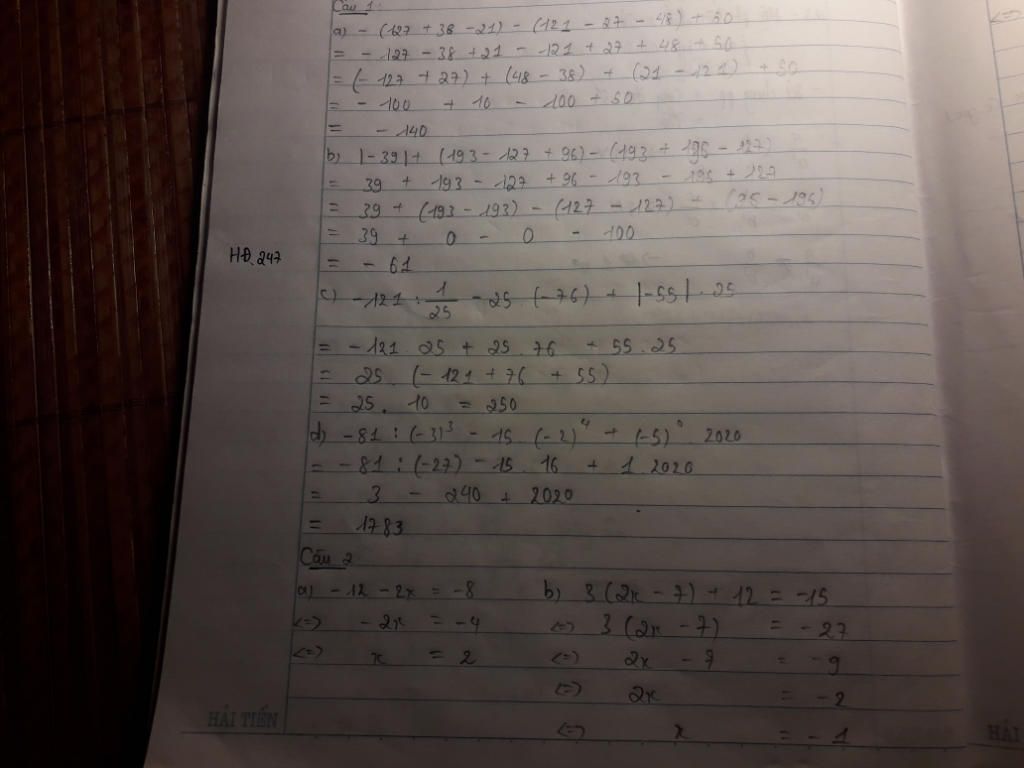 Câu 1:
a) - (127 + 38 - 21) - (121 - 27 - 48) + 50
= - 127 - 38 + 21 - 121 + 27 + 48 + 50
= (- 127 + 27) + (48 - 38) + (21 - 121) + 50
= - 100 + 10 - 100 + 50
= - 140
b) |-39| + (193 - 127 + 96) - (193 + 196 - 127)
= 39 + 193 - 127 + 96 - 193 - 196 + 127
= 39 + (193 - 193) - (127 - 127) + (96 - 196)
= 39 + 0 - 0 - 100
HĐ.247
= - 61
c) -121 : 1/25 - 25 . (-76) + |-55| . 25
= -121 . 25 + 25 . 76 + 55 . 25
= 25 . (- 121 + 76 + 55)
= 25 . 10 = 250
d) -81 : (-3)³ - 15 . (-2)⁴ + (-5)⁰ . 2020
= -81 : (-27) - 15 . 16 + 1 . 2020
= 3 - 240 + 2020
= 1783
Câu 2
a) -12 - 2x = -8 b) 3 (2x - 7) + 12 = -15
<=> - 2x = -4 <=> 3 (2x - 7) = - 27
<=> x = 2 <=> 2x - 7 = - 9
<=> 2x = - 2
<=> x = - 1
HẢI TIẾN
HẢI